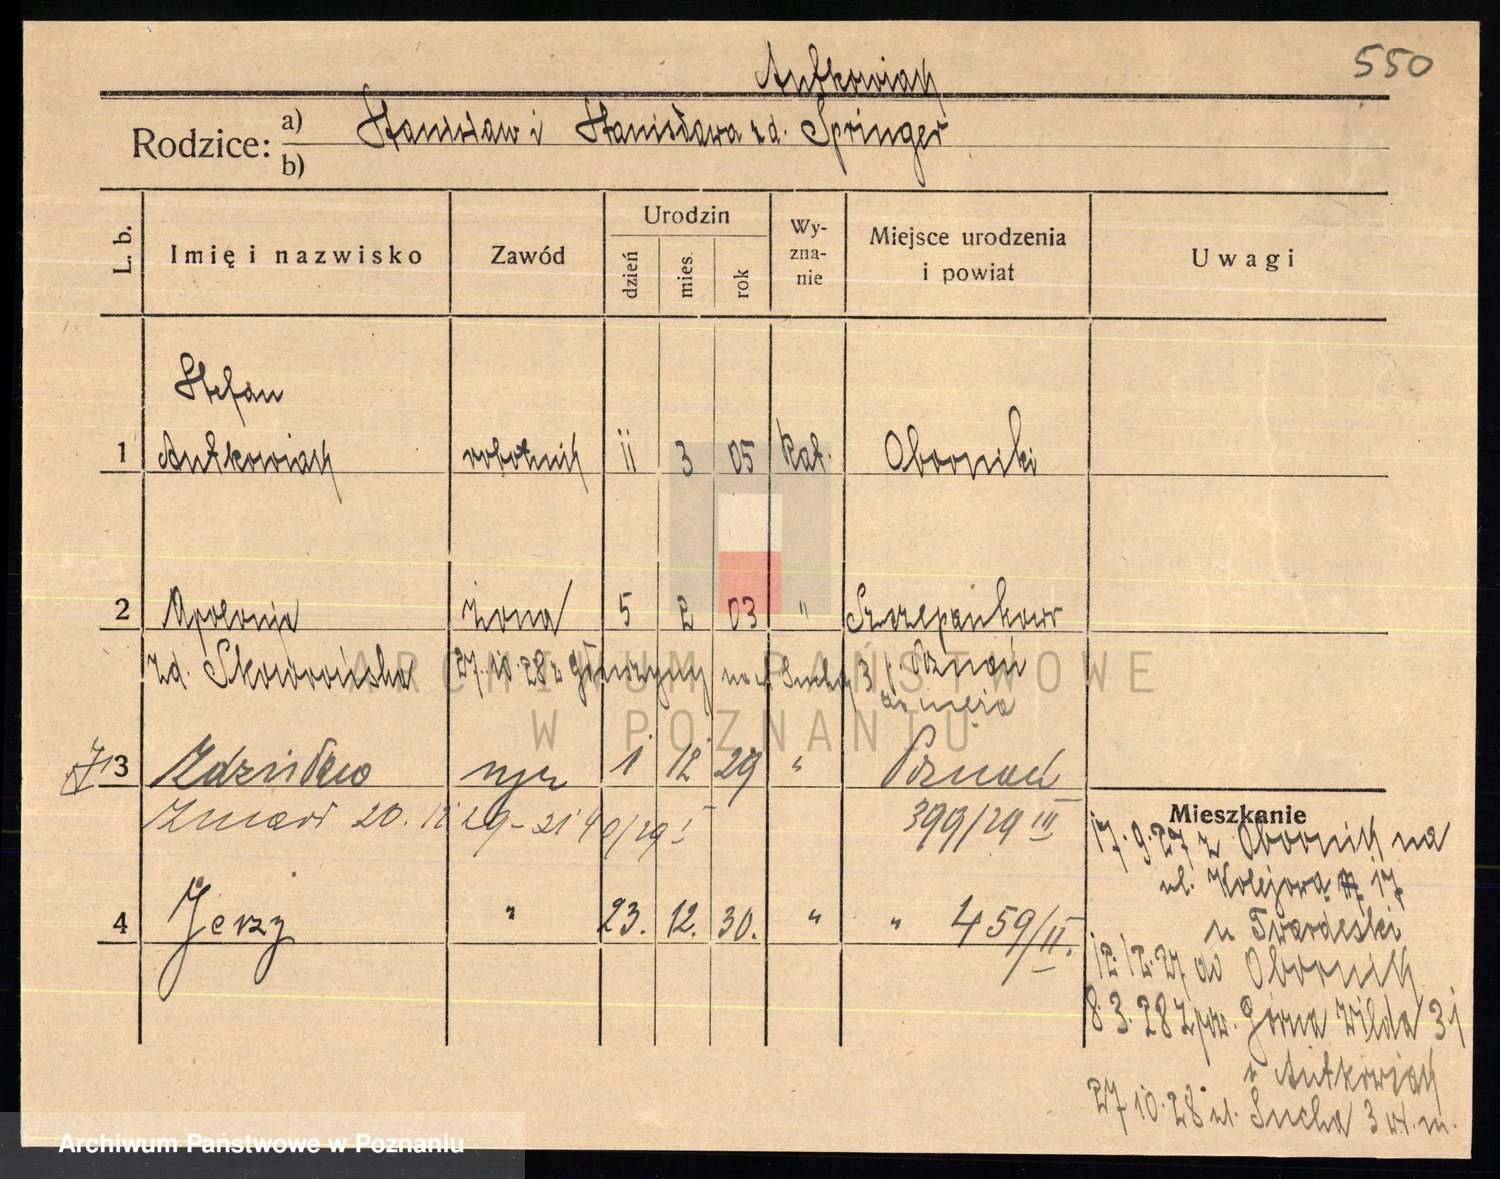 550
Antkowiak
Rodzice: a) Stanisław i Stanisława zd. Springer
b)
L. b.
Imię i nazwisko
Zawód
Urodzin
dzień
mies.
rok
Wy-
zna-
nie
Miejsce urodzenia
i powiat
Uwagi
Stefan
1 Antkowiak robotnik 11 3 05 kat. Oborniki
2 Apolonja żona 5 2 03 " Szczepankowo
zd. Skowrońska 27.10.28 z Sucha 3 Poznań
3 Zdzisław syn 1 12 29 " Poznań
Zmarł 20. 12 29 399/29 III
4 Jerzy " 23. 12. 30. " " 459/II.
Mieszkanie
17.9.27 z Obornik na
ul. Kolejową 17
u Twardeski
12.12.27 do Obornik
8.3.28 z pow. Górna Wilda 31
u Antkowiak
27 10.28 ul. Sucha 3 wł. m.
ARCHIWUM PAŃSTWOWE
W POZNANIU
Archiwum Państwowe w Poznaniu